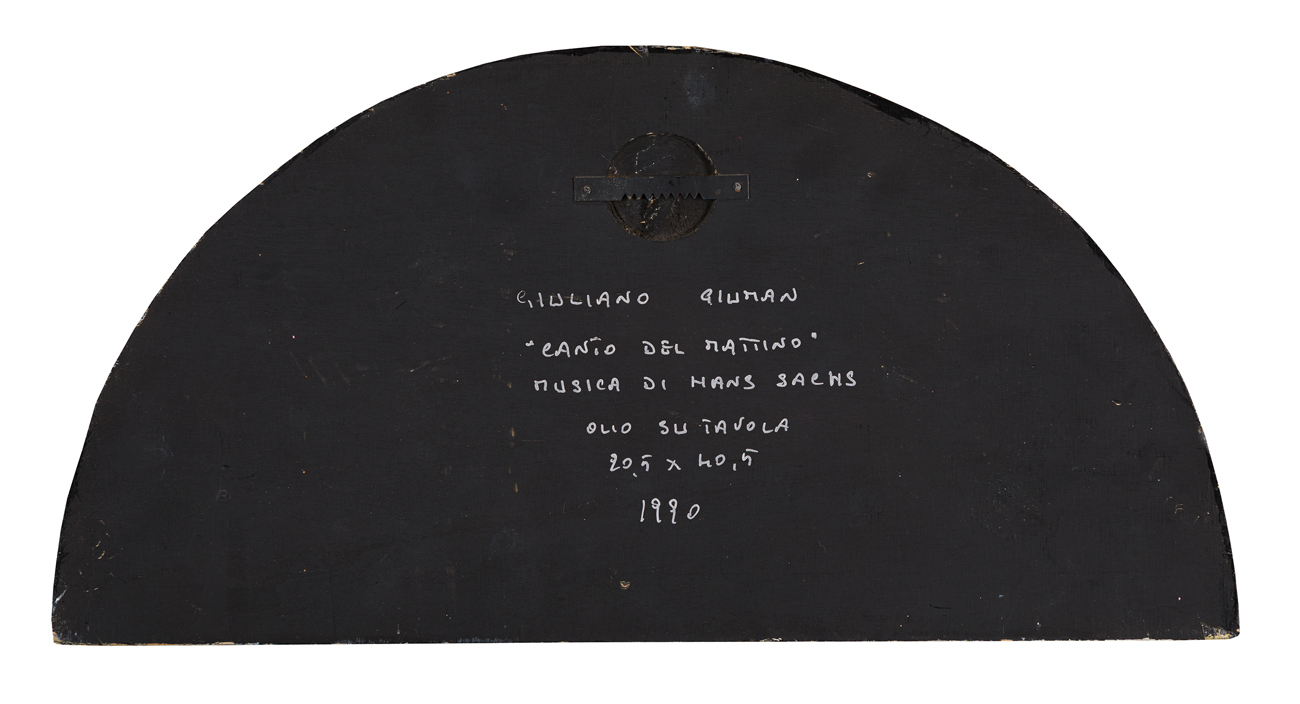 GIULIANO GIUMAN
"CANTO DEL MATTINO"
MUSICA DI HANS SACHS
OLIO SU TAVOLA
20,5 x 40,5
1990